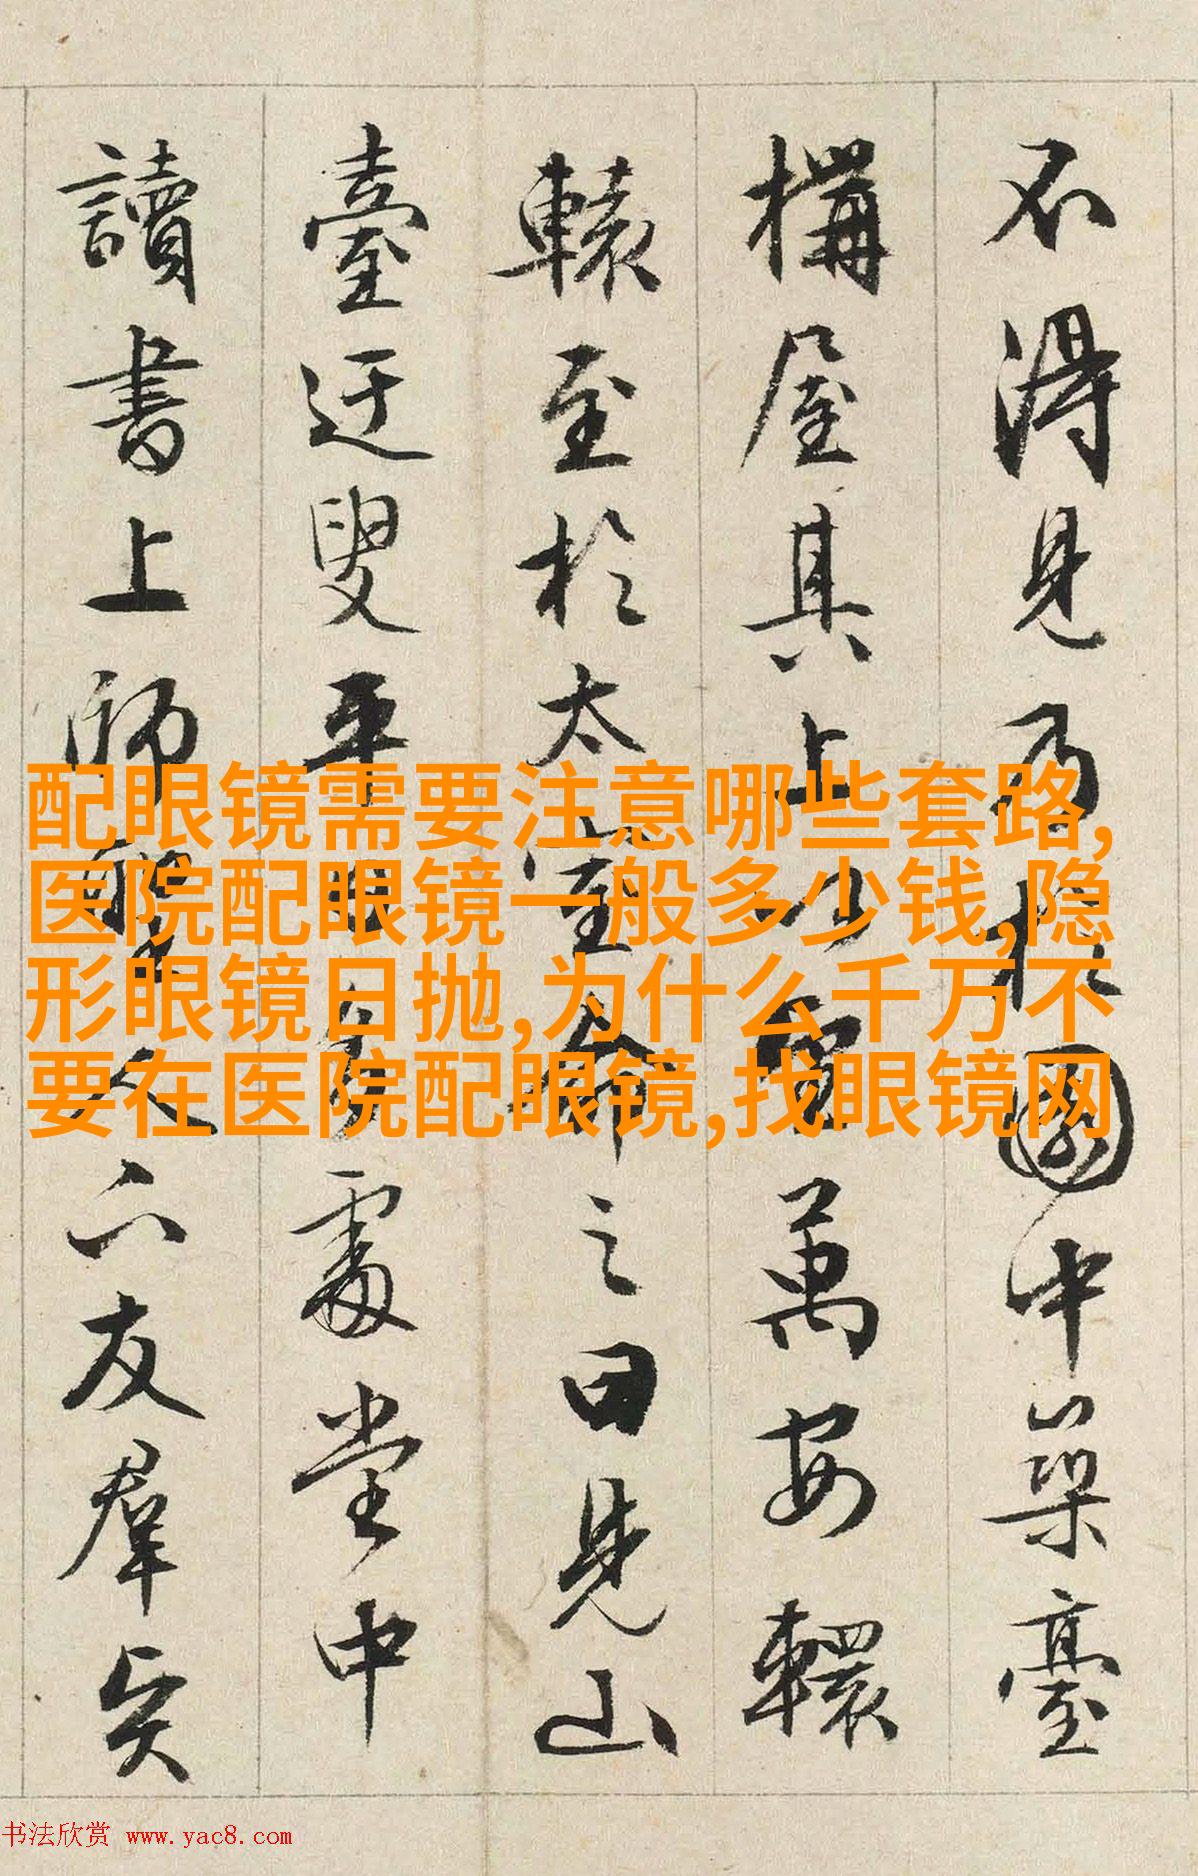 不得見乃於園中築臺
構屋其上以望萬安轘
轅至於太室命之曰見山
臺迂叟平日多處堂中
讀書上師聖人下友群賢
配眼镜需要注意哪些套路,
医院配眼镜一般多少钱,隐
形眼镜日抛,为什么千万不
要在医院配眼镜,找眼镜网
书法欣赏 www.yac8.com